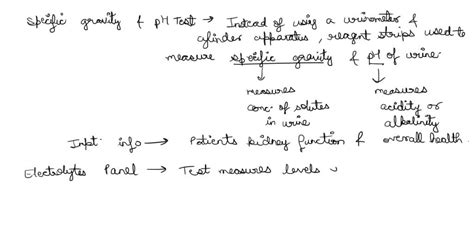 Specific gravity & pH Test → Instead of using a urinometer &
cylinder apparatus, reagent strips used to
measure specific gravity & pH of urine.
measures measures
conc. of solutes acidity or
in urine alkalinity
Impt info → Patients kidney function & overall health.
Electrolytes Panel → Test measures levels